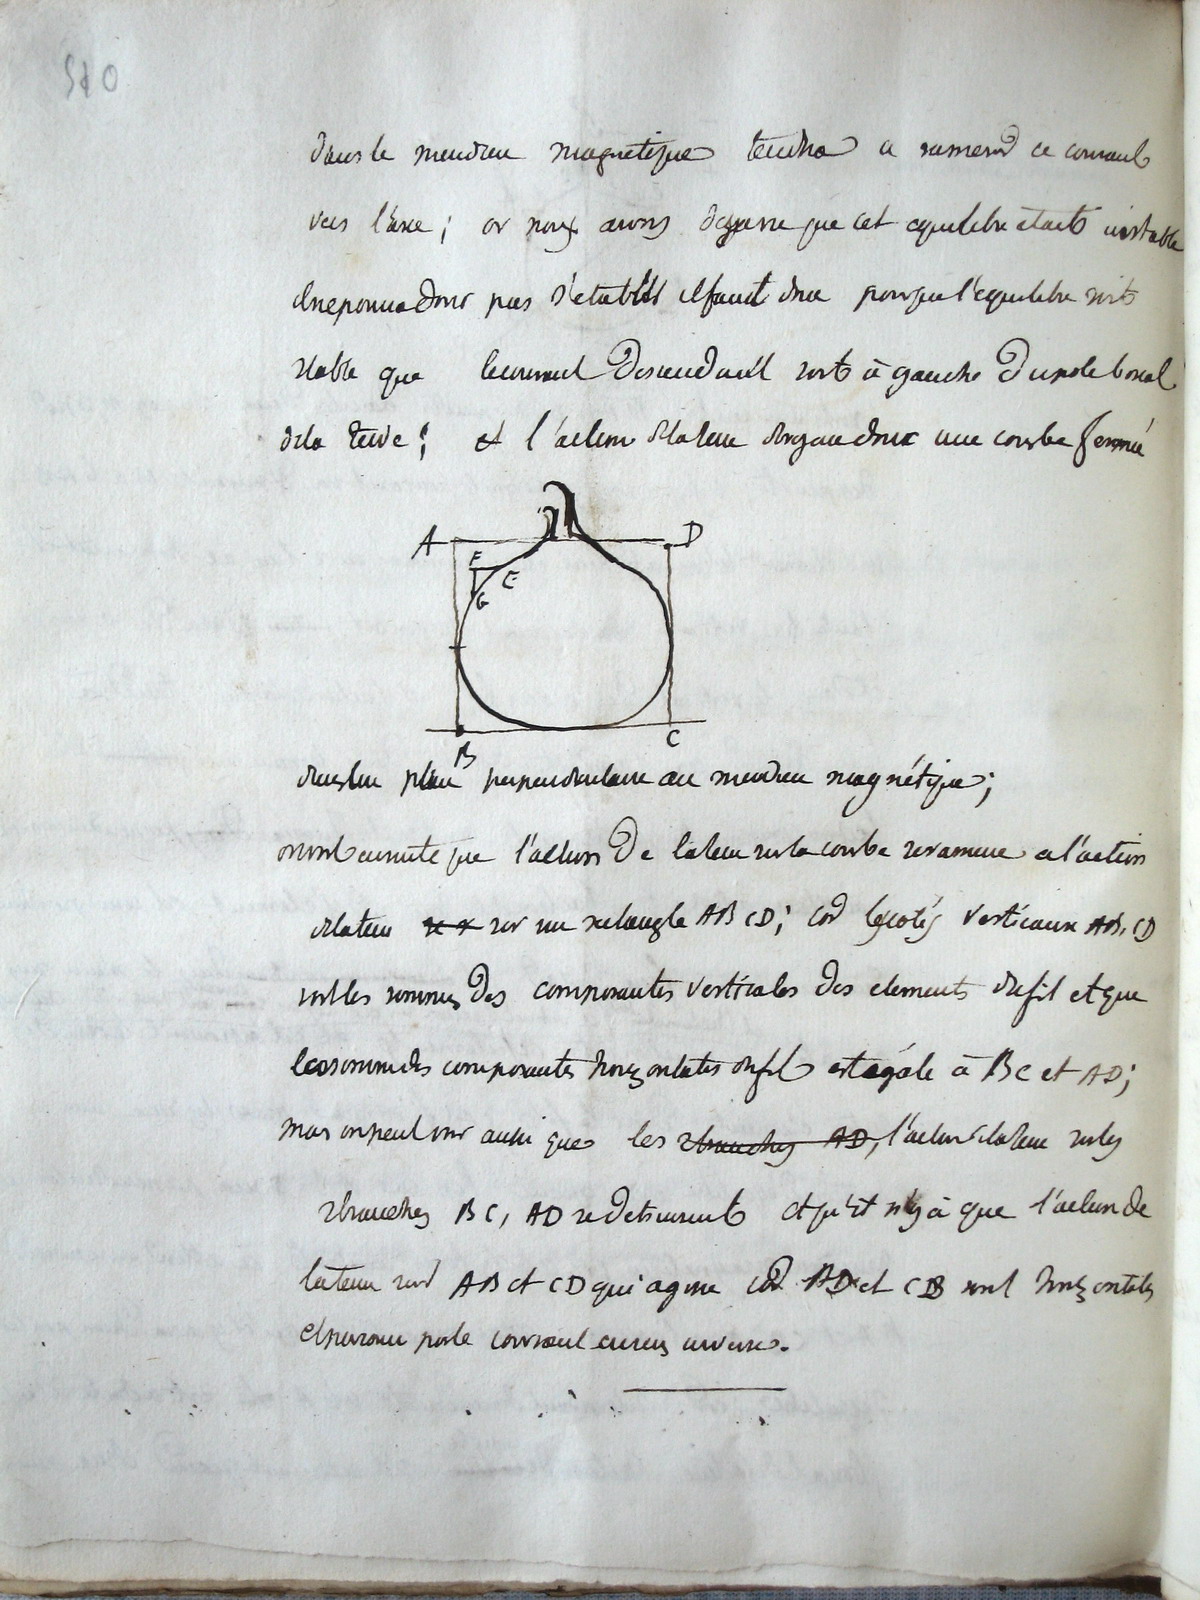 510
dans le meridien magnetique tendra a ramener ce courant
vers l'axe; or nous avons que cet equilibre etait instable
il ne pourra donc pas s'etablir il faut donc pour que l'equilibre soit
stable que le courant descendant soit à gauche du pole boreal
de la terre; et l'action de la terre donc une courbe fermée
A D
F
E
G
B C
dans un plan perpendiculaire au meridien magnétique;
on voit ensuite que l'action de la terre sur la courbe sera amenee a l'action
de la terre sur un rectangle ABCD; car les cotés verticaux AB, CD
sont les sommes des composantes verticales des elements du fil et que
les sommes des composantes horizontales du fil est égale à BC et AD;
mais on peut voir aussi que les branches AD, l'action de la terre sur les
branches BC, AD se detruisent et qu'il n'y a que l'action de
la terre sur AB et CD qui agisse car AD et CB sont horizontales
et parcourue par le courant en sens inverse.